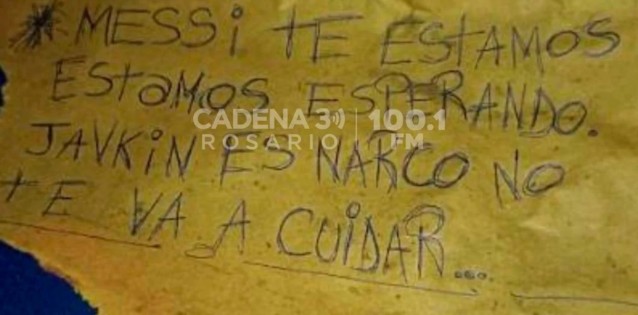 *MESSi TE ESTAMOS
EStaMOS ESPERANDO.
CADENA 3 100.1
ROSARIO FM
JAVKiN ES NARCO NO
tE VA A CUiDAR...